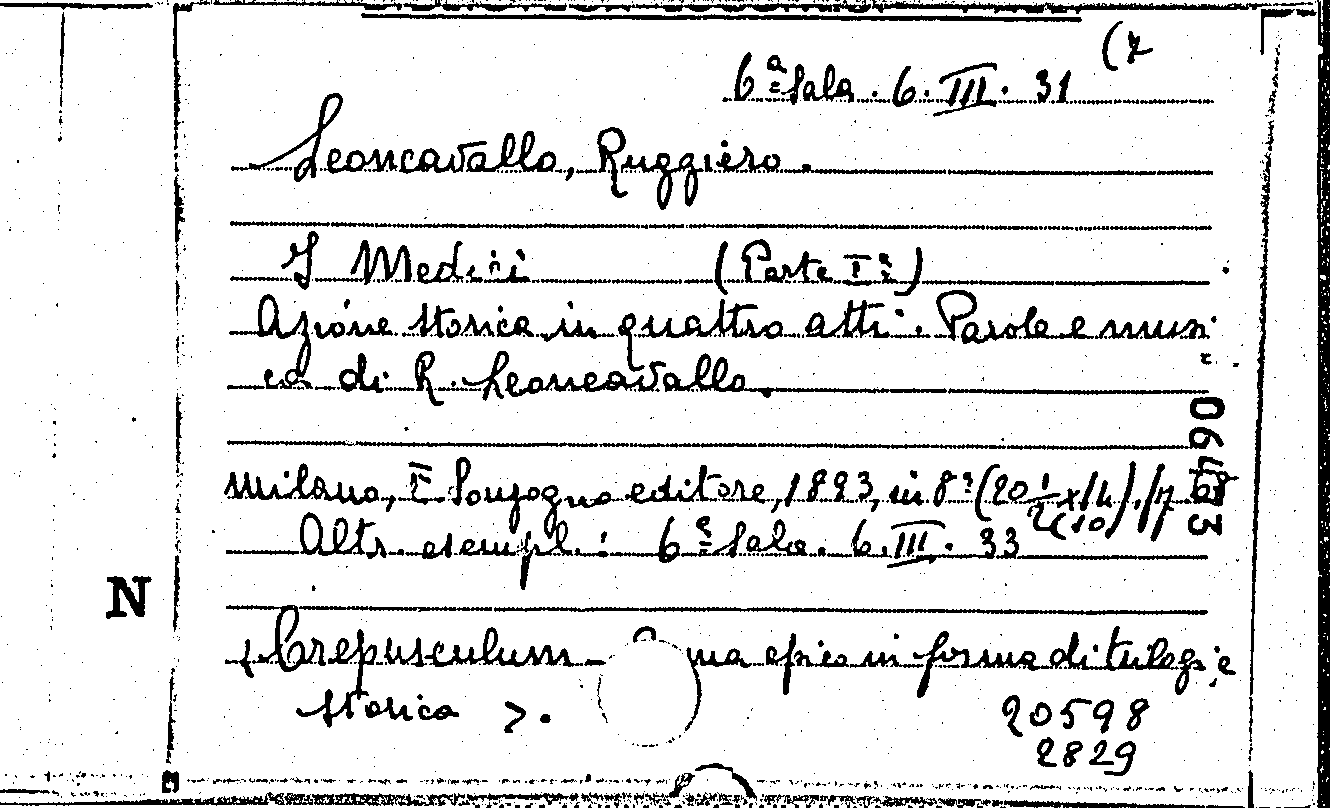 (7
6ª Sala. 6. III. 31
Leoncavallo, Ruggiero.
I Medici (Parte Iª)
Azione storica in quattro atti. Parole e musi-
ca di R. Leoncavallo.
Milano, E. Sonzogno editore, 1893, in 8º (20 1/2 x 14).
(10)
Altr. esempl.: 6ª Sala. 6. III. 33
N
< Crepusculum - ma epico in forma di trilogia
storica >.
20598
2829